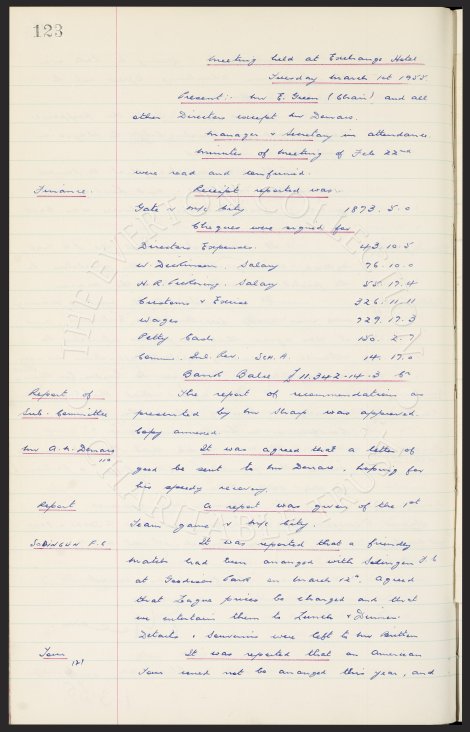 123
Meeting held at Exchange Hotel
Tuesday March 1st 1955.
Present:- Mr E. Green (Chair) and all
other Directors except Mr Demars.
Manager & Secretary in attendance
Minutes of Meeting of Feb 22nd
were read and confirmed.
Finance. Receipt reported was:
Gate v M/c City. 1873. 5. 0
Cheques were signed for
Directors Expenses. 43. 10. 5
W. Dickinson. Salary 76. 10. 0
H. R. Pickering. Salary 55. 17. 4
Customs & Excise 326. 11. 11
Wages 729. 17. 3
Petty Cash 150. 2. 7
Comm. Inl. Rev. Sch. A. 14. 17. 0
Bank Balce £11.342-14-3 Cr
Report of The report of recommendations as
Sub. Committee presented by Mr Sharp was approved.
Copy annexed.
Mr A. H. Demars It was agreed that a letter of
110
good be sent to Mr Demars, hoping for
his speedy recovery.
Report A report was given of the 1st
Team game v M/c City.
SODINGUN F.C It was reported that a friendly
match had been arranged with Sodingen F.C
at Goodison Park on March 12th. Agreed
that League prices be charged and that
we entertain them to Lunch & Dinner.
Details & Souvenirs were left to Mr
Tour It was reported that an American
121
Tour need not be arranged this year, and
THE EVERTON COLLECTION
CHARITABLE TRUST